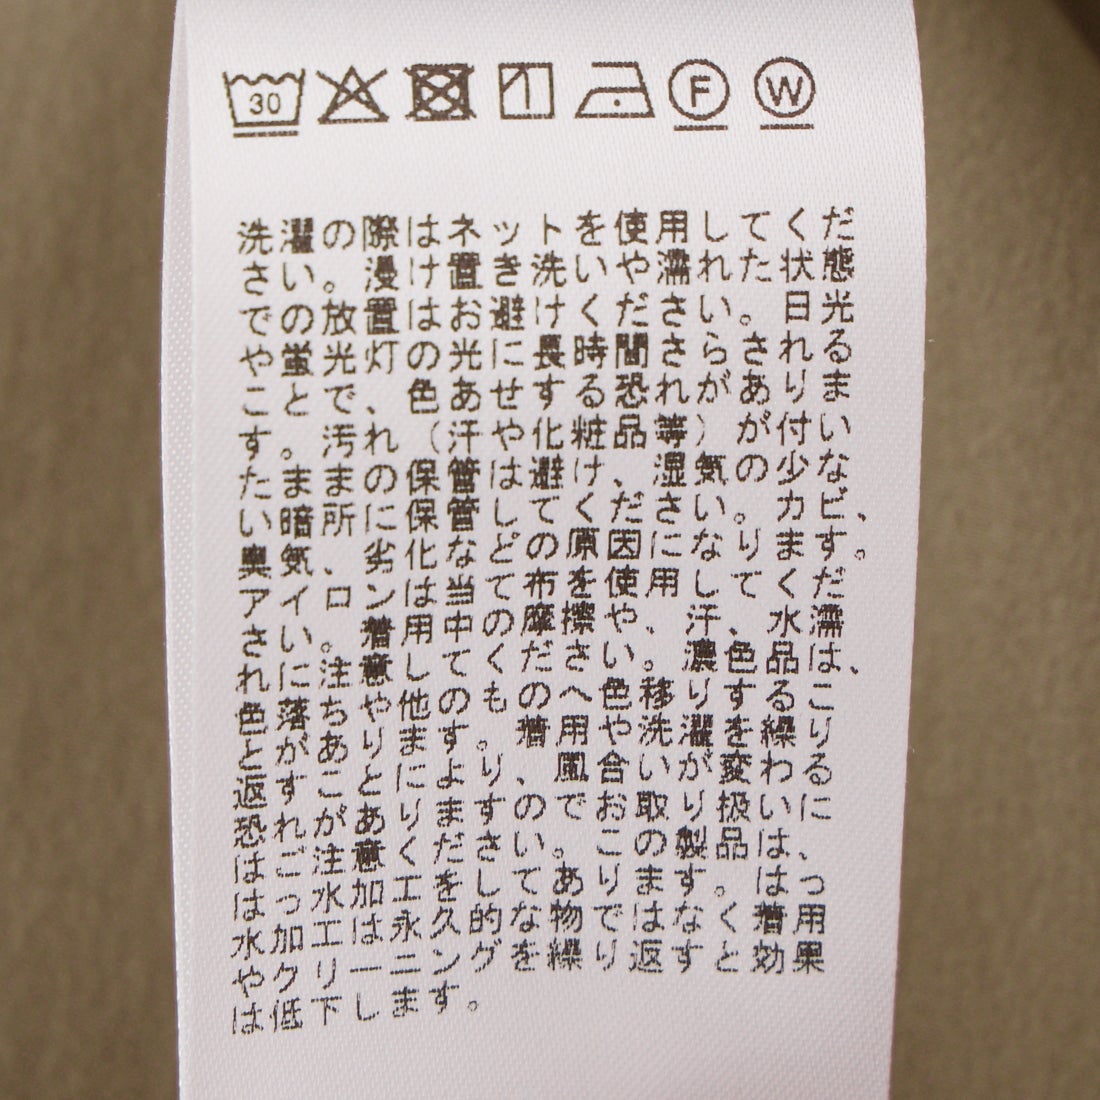 30 F W
洗濯の際はネットを使用してくだ
さい。浸け置き洗いや濡れた状態
での放置はお避けください。日光
や蛍光灯の光に長時間さらされる
ことで、色あせする恐れがありま
す。汚れ（汗や化粧品等）が付い
たままの保管は避け、湿気の少な
い暗所に保管してください。カビ、
臭気、劣化などの原因になります。
アイロンは当ての布を使用してくだ
さい。着用中の摩擦や、汗、水濡
れに注意してください。濃色品は、
色落ちや他のものへ色移りするこ
とがあります。着用や洗濯を繰り
返すことにより、風合いが変わる
恐れがありますのでお取り扱いに
はご注意ください。この製品は、
はっ水加工をしてあります。はっ
水加工は永久的な物ではなく着用
やクリーニングを繰り返すと効果
は低下します。